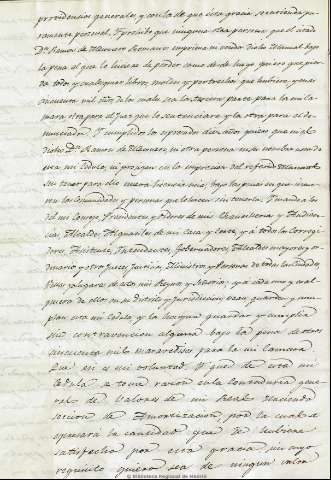 providencias generales, y con la de que esta gracia se entienda pu-
ramente personal. Y prohibo que ninguna otra persona que el citado
Dn. Ramon de Mesonero Romanos imprima ni venda dicho Manual bajo
la pena al que lo hiciere de perder como desde luego quiero que pierda
todos y cualesquier libros, moldes y pertrechos que tuviere, y mas
cincuenta mil mrs. de los cuales sea la tercera parte para la mi Ca-
mara otra para el Juez que lo sentenciare y la otra para el de-
nunciador. Y cumplidos los espresados diez años quiero que ni el
dicho Dn. Ramon de Mesonero, ni otra persona en su nombre use de
esta mi Cedula, ni prosigan en la impresion del referido Manual
sin tener para ello nueva licencia mia, bajo las penas en que incur-
ren los Concejos y personas que lo hacen sin tenerla. Y mando a los
del mi Consejo, Presidentes y Oidores de mis Chancillerias y Audien-
cias, Alcaldes, Alguaciles de mi Casa y Corte, y a todos los Corregi-
dores, Asistente, Gobernadores, Alcaldes mayores y or-
dinarios y otros Jueces, Justicias, Ministros y Personas de todas las Ciudades,
Villas y lugares de estos mis Reynos y Señorios, y a cada uno y cual-
quiera de ellos en su distrito y Jurisdiccion vean guarden y cum-
plan esta mi Cedula y la hagan guardar y cumplir
sin contravencion alguna bajo la pena de otros
cincuenta mil maravedises para la mi Camara
Que asi es mi voluntad. Y que de esta mi
Cedula se tome razon en la Contaduria gene-
ral de Valores de mi Real Hacienda
seccion de Amortizacion, por la cual se
espresará la cantidad que se hubiere
satisfecho por esta gracia sin cuyo
requisito quiero sea de ningun valor
© Biblioteca Regional de Madrid